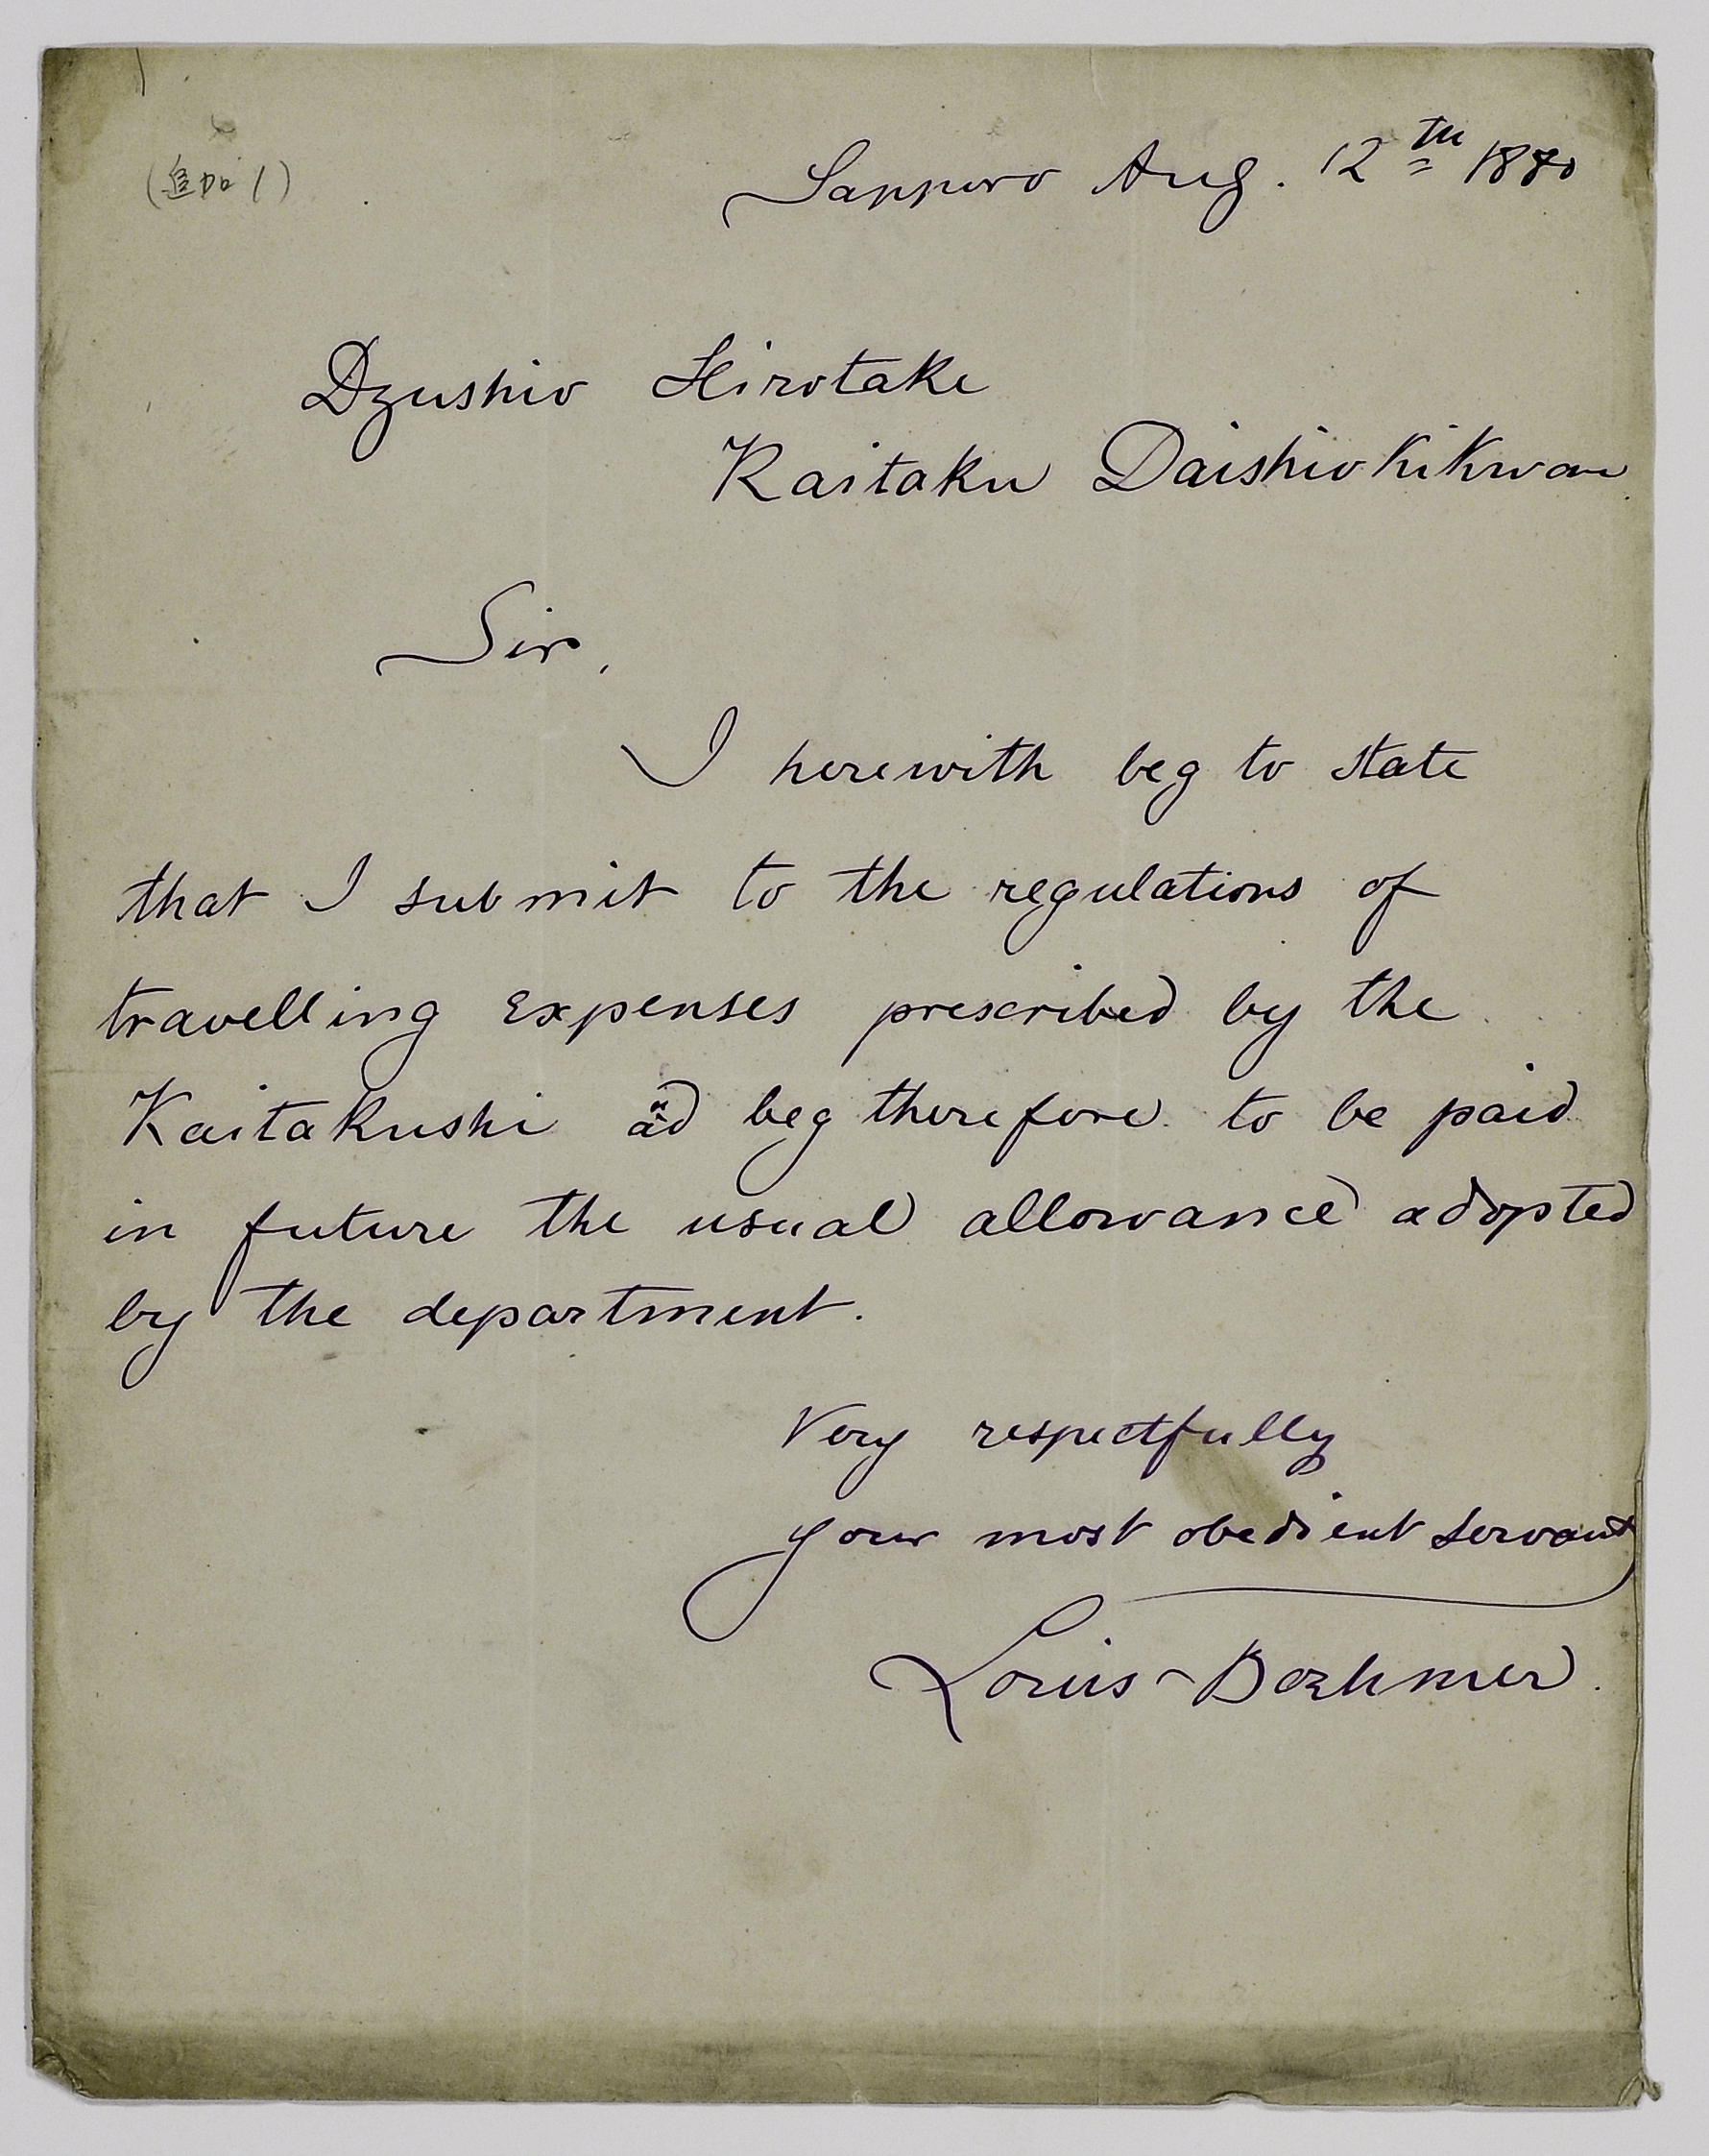 (追加1)
Sapporo Aug. 12th 1880
Dzushio Hirotake
Kaitaku Daishiokikwan
Sir,
I herewith beg to state
that I submit to the regulations of
travelling expenses prescribed by the
Kaitakushi and beg therefore to be paid
in future the usual allowance adopted
by the department.
Very respectfully
your most obedient servant
Louis Boehmer.